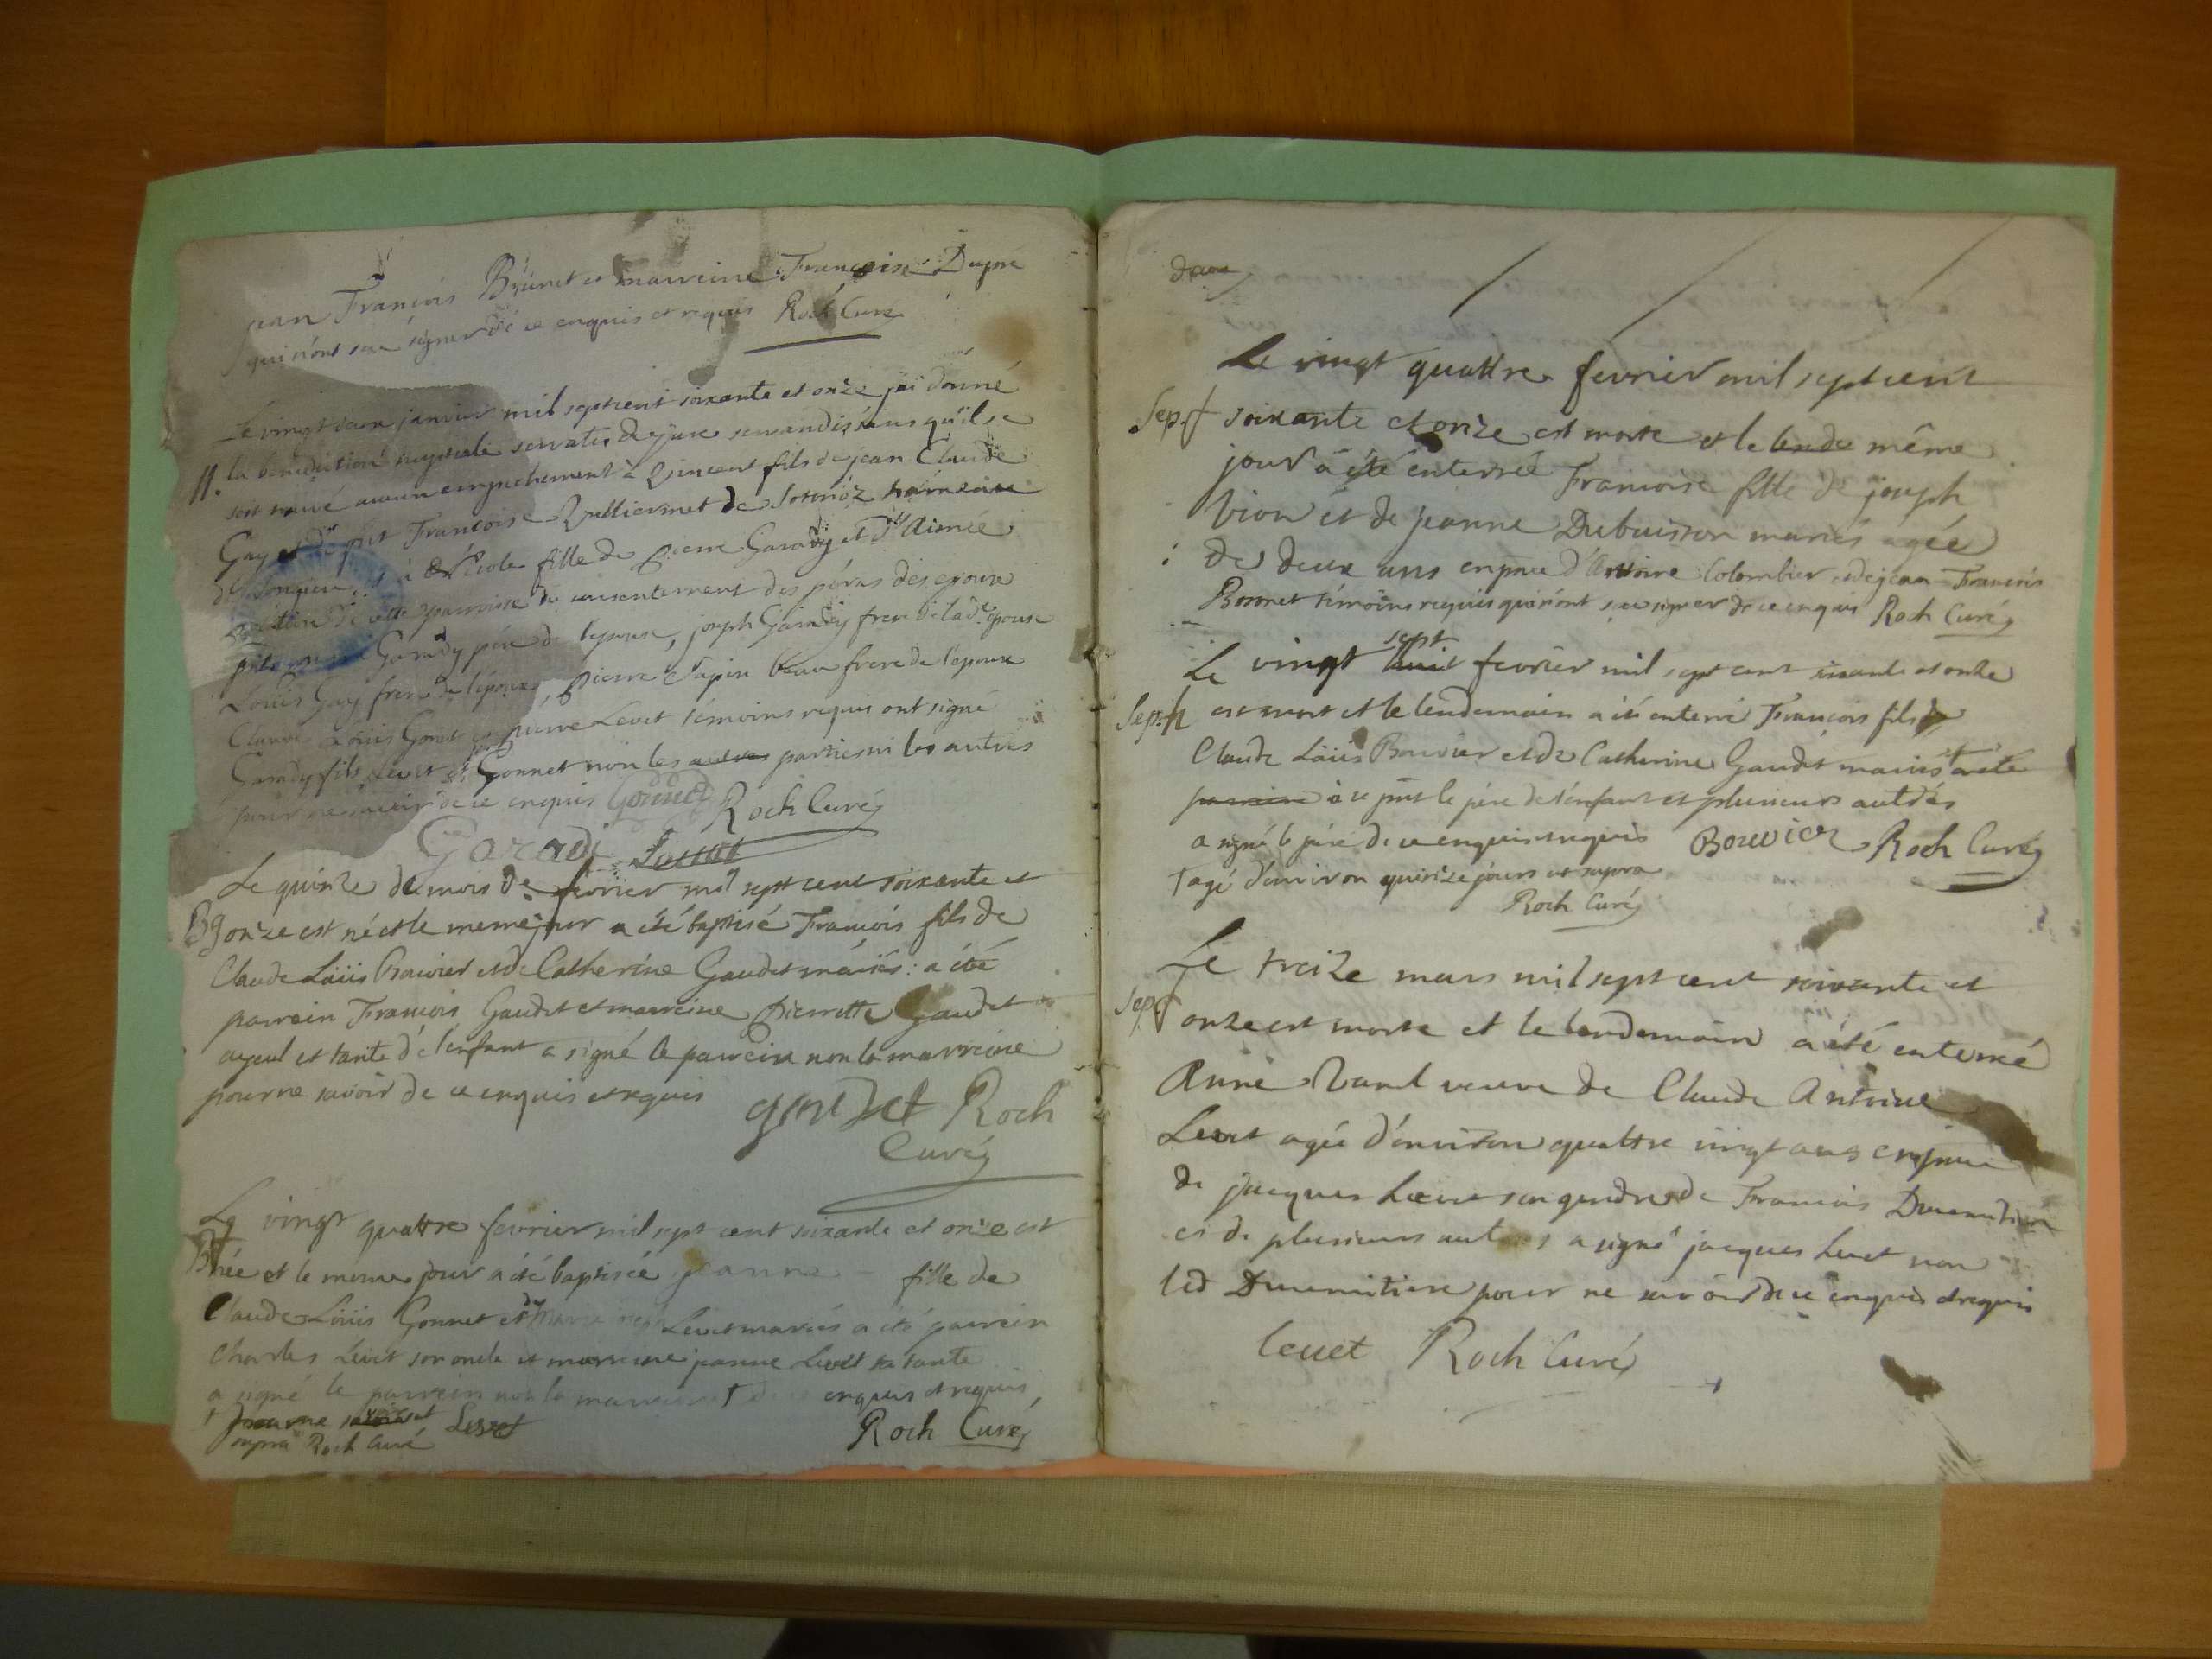 jean François Brunet et marreine Françoise Dupré
qui n'ont scu signer de ce enquis et requis Roch Curé
Le vingt deux janvier mil sept cent soixante et onze j'ai donné
la bénédiction nuptiale servatis de jure servandis sans qu'il se
soit trouvé aucun empechement à Vincent fils de jean Claude
Gay et de Françoise Vulliermet de
à Nicole fille de pierre Garady et d'Aimée
de cette paroisse du consentement des péres des epoux
Garady pére de lepouse, joseph Garady frere de la de epouse
Louis Gay frere de l'époux, pierre Papin beau frere de l'epoux
Claude Louis Gonet et pierre Levet témoins requis ont signé
Garady fils, Levet et Gonnet non les autres parties ni les autres
pour ne scavoir de ce enquis Gonnet Roch Curé
Garadi Levet
Le quinze du mois de fevrier mil sept cent soixante et
Bg onze est né et le meme jour a été baptisé François fils de
Claude Loüis Bouvier et de Catherine Gaudet mariés : a été
parrein François Gaudet et marreine pierrette Gaudet
ayeul et tante de l'enfant a signé le parrein non la marreine
pour ne savoir de ce enquis et requis gaudet Roch
Curé
Le vingt quattre fevrier mil sept cent soixante et onze est
née et le meme jour a été baptisée jeanne fille de
Claude Loüis Gonnet et de Marie Levet mariés a été parrein
Charles Levet son oncle et marreine jeanne Levet sa tante
a signé le parrein non la marreine † de ce enquis et requis
† pour ne savoir ut Levet Roch Curé
supra Roch Curé
Le vingt quattre fevrier mil sept cent
Sep.f soixante et onze est morte et le lende même
jour a été enterrée Françoise fille de joseph
Vion et de jeanne Dubuisson mariés agée
de deux ans en pnce d'Antoine Colombier et de jean François
Bonnet témoins requis qui n'ont scu signer de ce enquis Roch Curé
sept
Le vingt huit fevrier mil sept cent soixante et onze
Sep.h est mort et le lendemain a été enterré François fils de
Claude Loüis Bouvier et de Catherine Gaudet mariés † a été
parreine à ce pnt le père de l'enfant et plusieurs autres
a signé le père de ce enquis et requis Bouvier Roch Curé
† agé d'environ quinze jours ut supra
Roch Curé
Le treize mars mil sept cent soixante et
Sep.f onze est morte et le lendemain a été enterré
Anne veuve de Claude Antoine
Levet agée d'environ quattre vingt ans en pnce
de jacques Levet son gendre de François
et de plusieurs autres a signé jacques Levet non
led pour ne savoir de ce enquis et requis
Levet Roch Curé